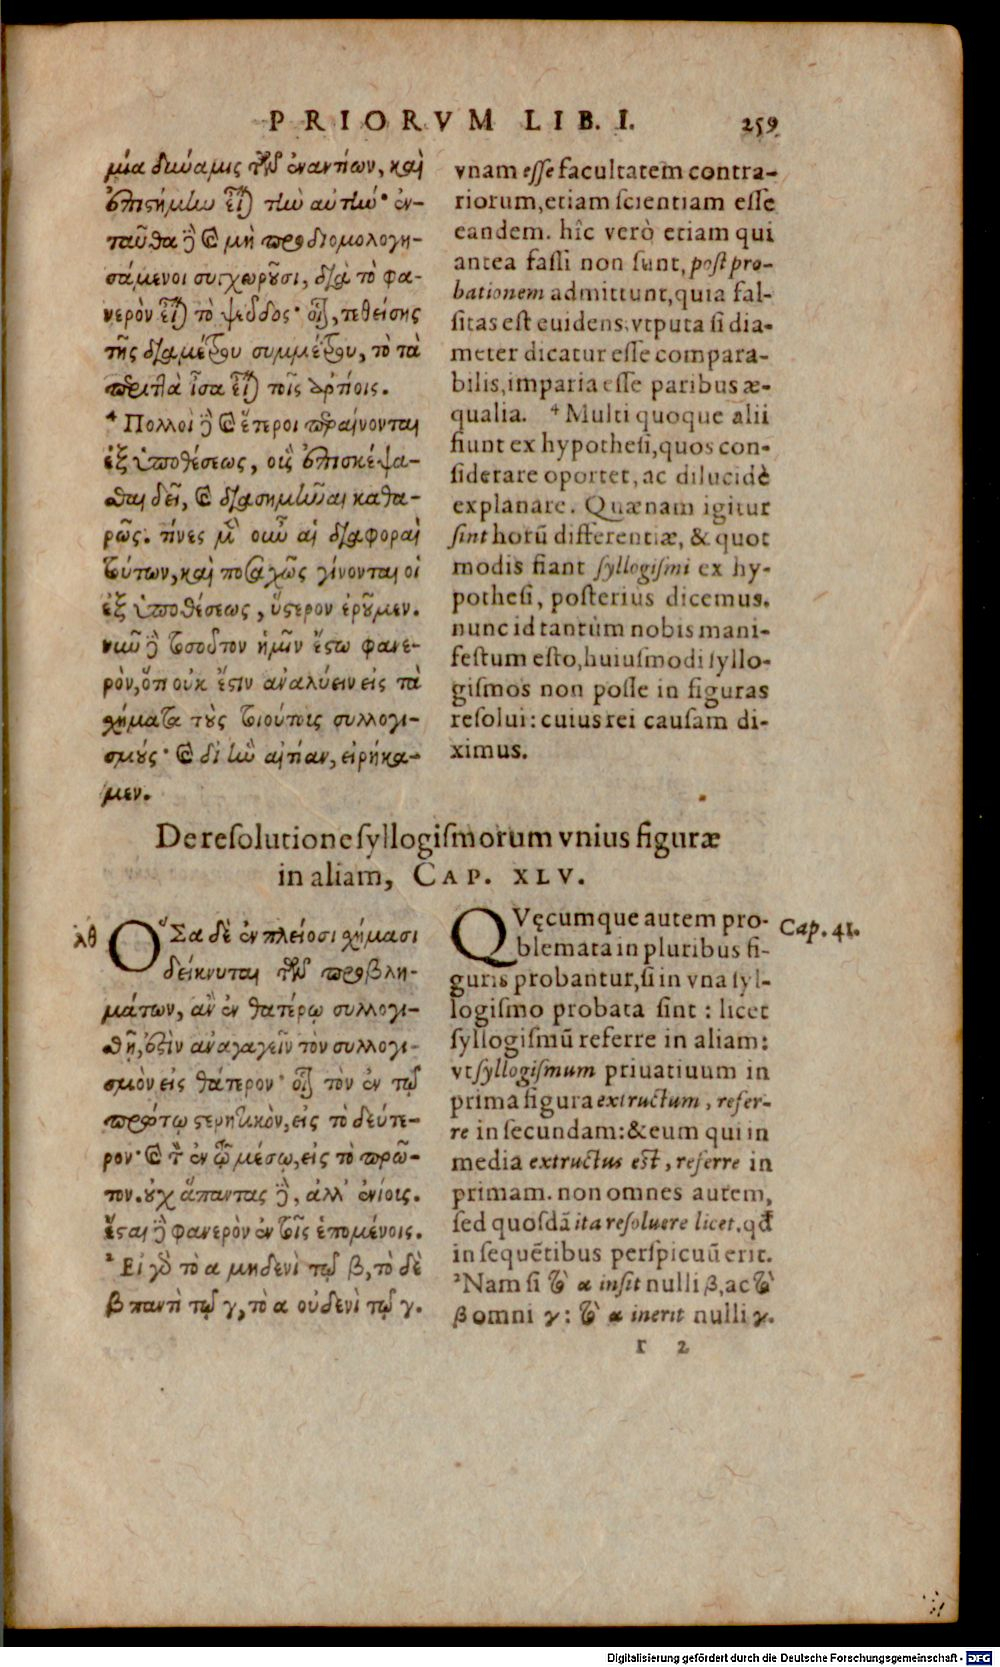 PRIORVM LIB. I. 259
μία δύναμις τῶν ἐναντίων, καὶ
ἐπιστήμην εἶναι τὴν αὐτήν· ἐν-
ταῦθα δὲ καὶ μὴ προδιομολογη-
σάμενοι συγχωροῦσι, διὰ τὸ φα-
νερὸν εἶναι τὸ ψεῦδος· οἷον, τεθείσης
τῆς διαμέτρου συμμέτρου, τὸ τὰ
περιττὰ ἴσα εἶναι τοῖς ἀρτίοις.
⁴ Πολλοὶ δὲ καὶ ἕτεροι περαίνονται
ἐξ ὑποθέσεως, οὓς ἐπισκέψα-
σθαι δεῖ, καὶ διασημῆναι καθα-
ρῶς. τίνες μὲν οὖν αἱ διαφοραὶ
τούτων, καὶ ποσαχῶς γίνονται οἱ
ἐξ ὑποθέσεως, ὕστερον ἐροῦμεν.
νῦν δὲ τοσοῦτον ἡμῖν ἔστω φανε-
ρὸν, ὅτι οὐκ ἔστιν ἀναλύειν εἰς τὰ
σχήματα τοὺς τοιούτους συλλογι-
σμούς· καὶ δι᾽ ἣν αἰτίαν, εἰρήκα-
μεν.
vnam esse facultatem contra-
riorum, etiam scientiam esse
eandem. hîc verò etiam qui
antea fassi non sunt, post pro-
bationem admittunt, quia fal-
sitas est euidens: vtputa si dia-
meter dicatur esse compara-
bilis, imparia esse paribus æ-
qualia. ⁴ Multi quoque alii
fiunt ex hypothesi, quos con-
siderare oportet, ac dilucidè
explanare. Quænam igitur
sint horū differentiæ, & quot
modis fiant syllogismi ex hy-
pothesi, posterius dicemus.
nunc id tantùm nobis mani-
festum esto, huiusmodi syllo-
gismos non posse in figuras
resolui: cuius rei causam di-
ximus.
De resolutione syllogismorum vnius figuræ
in aliam, CAP. XLV.
λθ
Ὅσα δὲ ἐν πλείοσι σχήμασι
δείκνυται τῶν προβλη-
μάτων, ἂν ἐν θατέρῳ συλλογι-
σθῇ, ἔστιν ἀναγαγεῖν τὸν συλλογι-
σμὸν εἰς θάτερον· οἷον τὸν ἐν τῷ
πρώτῳ στερητικὸν, εἰς τὸ δεύτε-
ρον· καὶ τὸν ἐν τῷ μέσῳ, εἰς τὸ πρῶ-
τον. οὐχ ἅπαντας δὲ, ἀλλ᾽ ἐνίους.
ἔσται δὲ φανερὸν ἐν τοῖς ἑπομένοις.
² Εἰ γὰρ τὸ α μηδενὶ τῷ β, τὸ δὲ
β παντὶ τῷ γ, τὸ α οὐδενὶ τῷ γ.
QVęcumque autem pro-
blemata in pluribus fi-
guris probantur, si in vna syl-
logismo probata sint: licet
syllogismū referre in aliam:
vt syllogismum priuatiuum in
prima figura extructum, refer-
re in secundam: & eum qui in
media extructus est, referre in
primam. non omnes autem,
sed quosdā ita resoluere licet. qđ
in sequētibus perspicuū erit.
² Nam si τὸ α insit nulli β, ac τὸ
β omni γ: τὸ α inerit nulli γ.
Cap. 41.
r 2
Digitalisierung gefördert durch die Deutsche Forschungsgemeinschaft - DFG